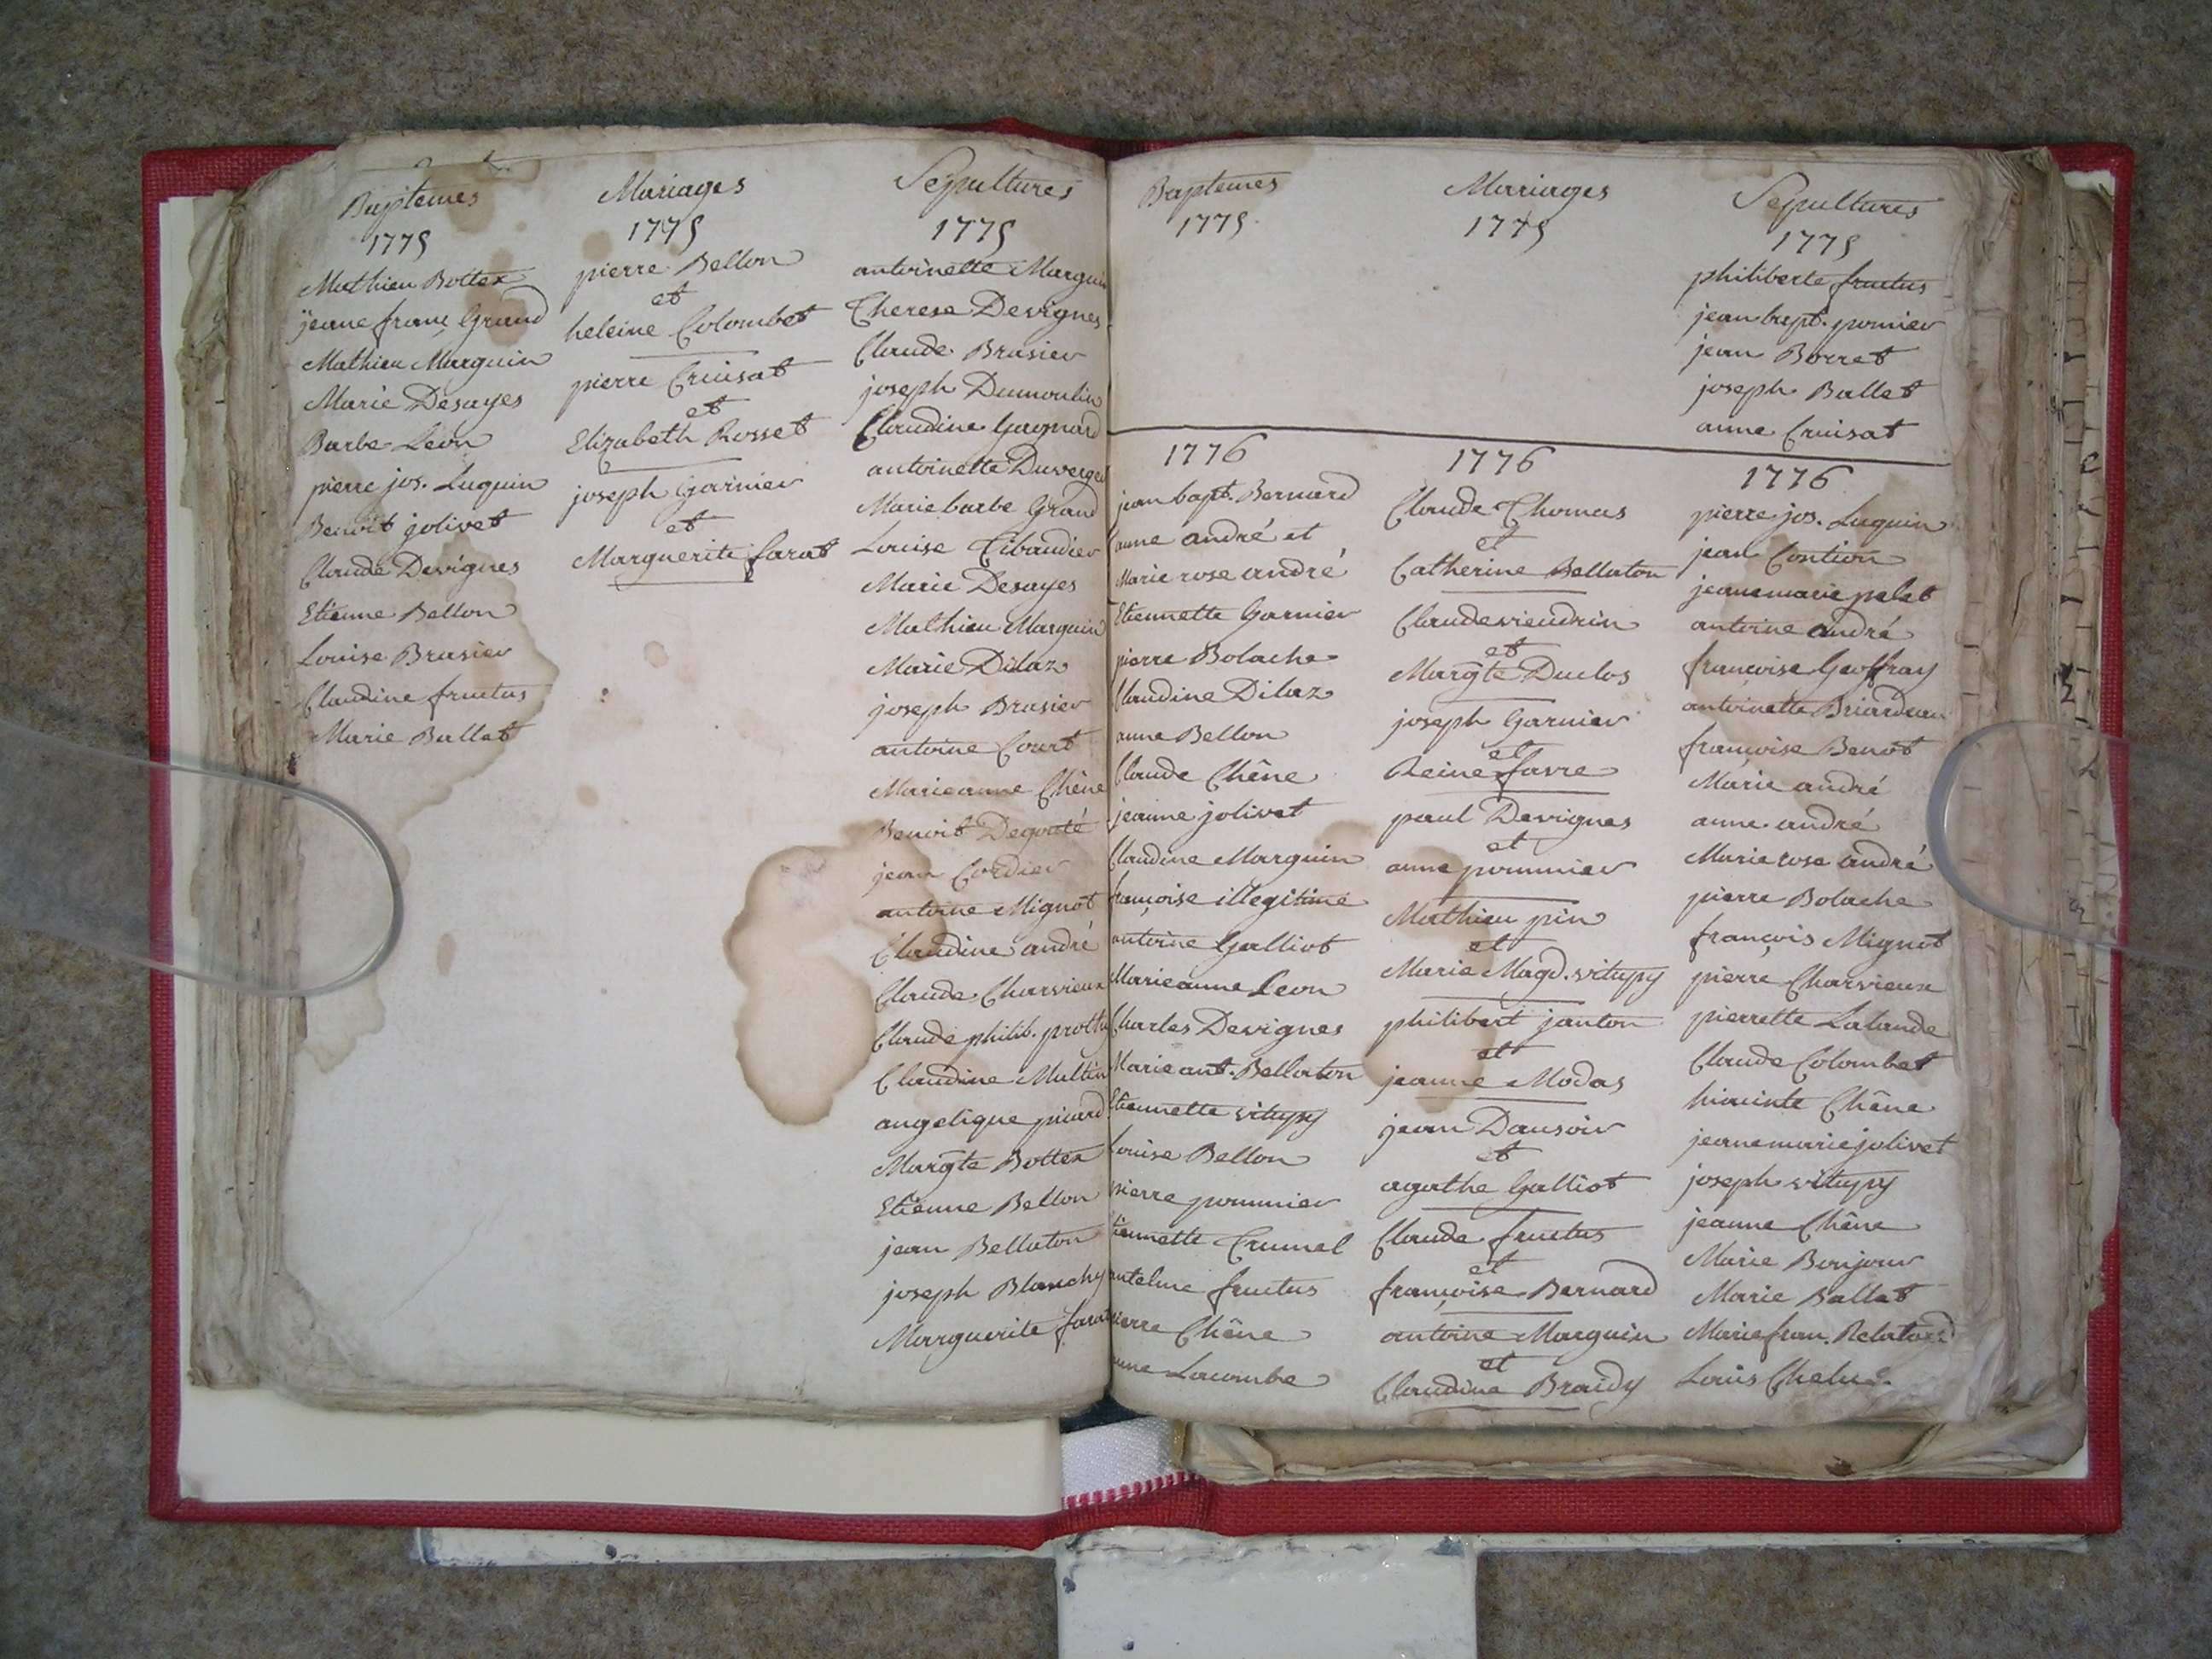 Baptemes
1775
Mathieu Bottex
jeane franç Grand
Mathieu Marguin
Marie Desayes
Barbe Leon
pierre jos. Luguin
Benoit jolivet
Claude Devignes
Etienne Bellon
Louise Brasier
Claudine fructus
Marie Ballet
Mariages
1775
pierre Bellon
et
heleine Colombet
pierre Cruisat
et
Elizabeth Rosset
joseph Garnier
et
Marguerite farat
Sepultures
1775
antoinette Marguin
Therese Devignes
Claude Brasier
joseph Dumoulin
Claudine Gagnard
antoinette Duverger
Marie barbe Grand
Louise Tibaudier
Marie Desayes
Mathieu Marguin
Marie Dilaz
joseph Brasier
antoine Court
Marieanne Chêne
Benoit Degouté
jean Cordier
antoine Mignot
Claudine andré
Claude Charvieux
Claude philib.
Claudine Multin
angelique picard
Margte Bottex
Etienne Bellon
jean Bellaton
joseph Blanchy
Marguerite farat
Baptemes
1775
Mariages
1775
Sepultures
1775
philiberte fructus
jean bapt. pomier
jean Borret
joseph Ballet
anne Cruisat
1776
jean bapt. Bernard
anne andré et
Marie rose andré
Etiennette Garnier
pierre Bolache
Claudine Dilaz
anne Bellon
Claude Chêne
jeanne jolivet
Claudine Marguin
françoise illegitime
antoine Galliot
Marieanne Leon
Charles Devignes
Marie ant. Bellaton
Etiennette vitupy
Louise Bellon
pierre pommier
tiennette Crumel
antelme fructus
pierre Chêne
anne Lacombe
1776
Claude Thomas
et
Catherine Bellaton
Claude vieudrin
et
Margte Duclos
joseph Garnier
et
Reine favre
paul Devignes
et
anne pommier
Mathieu pin
et
Marie Magd. vitupy
philibert janton
et
jeanne Modas
jean Dansoir
et
agathe Galliot
Claude fructus
et
françoise Bernard
antoine Marguin
et
Claudine Braidy
1776
pierre jos. Luguin
jean Contion
jeane marie pelet
antoine andré
françoise Geoffray
antoinette Briardeau
françoise Benot
Marie andré
anne andré
Marie rose andré
pierre Bolache
françois Mignot
pierre Charvieux
pierrette Lalande
Claude Colombet
hiacinte Chêne
jeane marie jolivet
joseph vitupy
jeanne Chêne
Marie Bonjour
Marie Ballet
Marie fran. Relatord
Louis Chelu